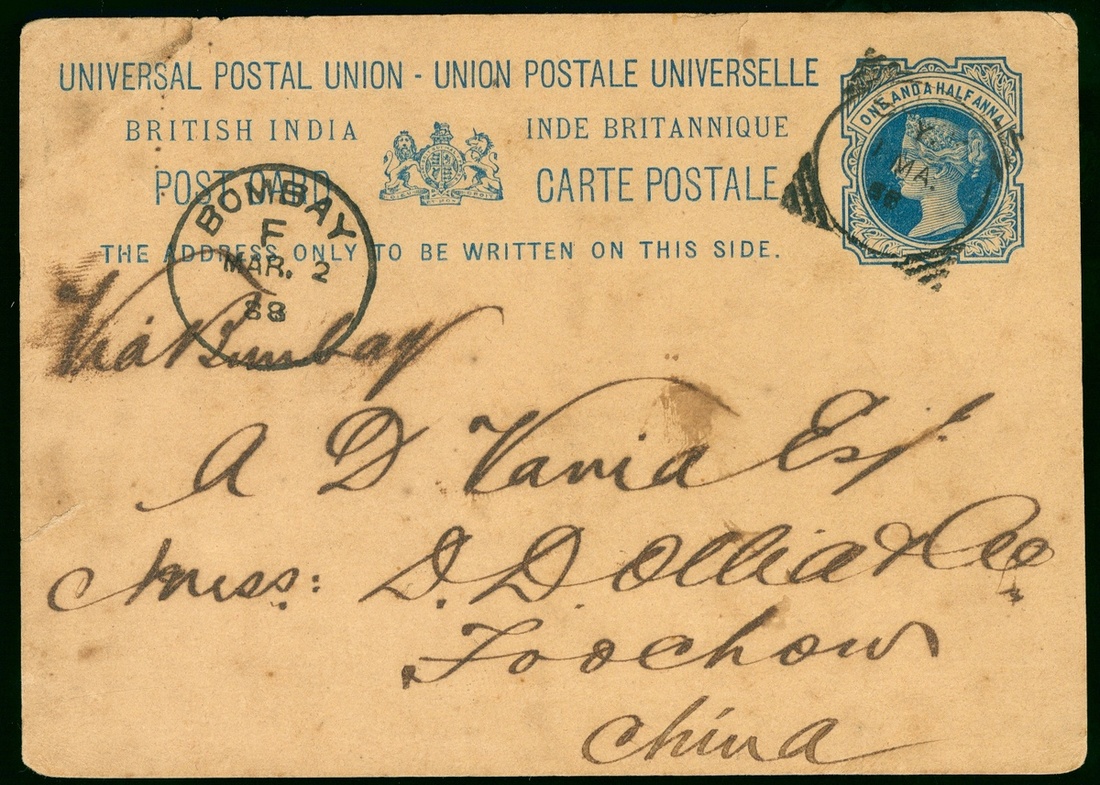 UNIVERSAL POSTAL UNION - UNION POSTALE UNIVERSELLE
BRITISH INDIA INDE BRITANNIQUE
POST CARD CARTE POSTALE
THE ADDRESS ONLY TO BE WRITTEN ON THIS SIDE.
ONE AND A HALF ANNA
Y.
MA.
88
BOMBAY
F
MAR. 2
88
Viá Bombay
A D Vania Esq
Mess: D. D. Ollia & Co
Foochow
China